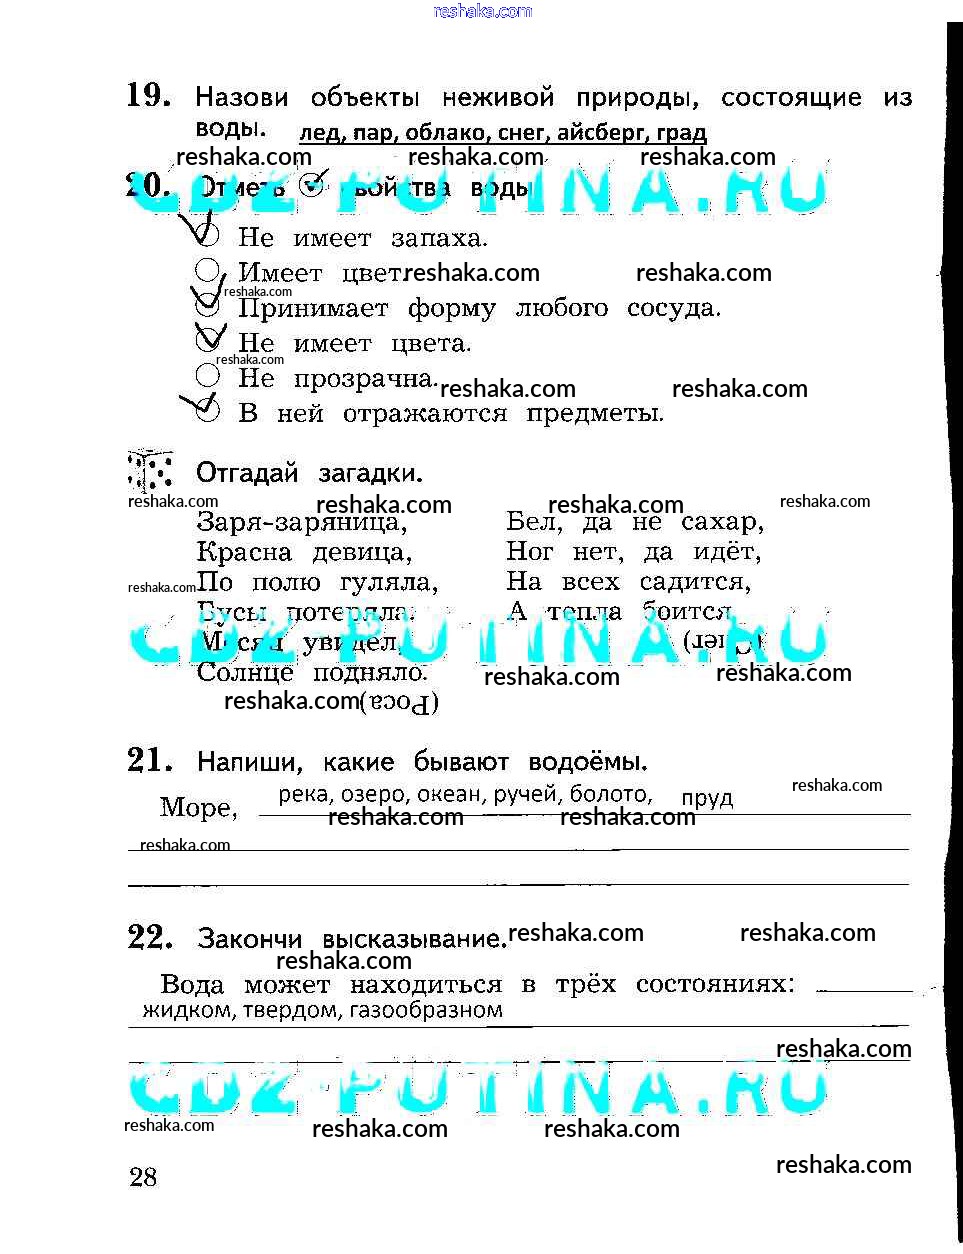 reshaka.com
19. Назови объекты неживой природы, состоящие из
воды. лед, пар, облако, снег, айсберг, град
reshaka.com reshaka.com reshaka.com
20. Отметь свойства воды
GDZ-PUTINA.RU
Не имеет запаха.
Имеет цвет reshaka.com reshaka.com
reshaka.com
Принимает форму любого сосуда.
Не имеет цвета.
reshaka.com
Не прозрачна. reshaka.com reshaka.com
В ней отражаются предметы.
Отгадай загадки.
reshaka.com reshaka.com reshaka.com reshaka.com
Заря-заряница,
Красна девица,
По полю гуляла,
reshaka.com
Бусы потеряла.
Месяц увидел,
Солнце подняло.
(Роса)
reshaka.com
Бел, да не сахар,
Ног нет, да идёт,
На всех садится,
А тепла боится.
(Снег)
GDZ-PUTINA.RU
reshaka.com reshaka.com
21. Напиши, какие бывают водоёмы.
reshaka.com
Море, река, озеро, океан, ручей, болото, пруд
reshaka.com reshaka.com
reshaka.com
22. Закончи высказывание. reshaka.com reshaka.com
reshaka.com
Вода может находиться в трёх состояниях:
жидком, твердом, газообразном
reshaka.com
GDZ-PUTINA.RU
reshaka.com reshaka.com reshaka.com
28
reshaka.com